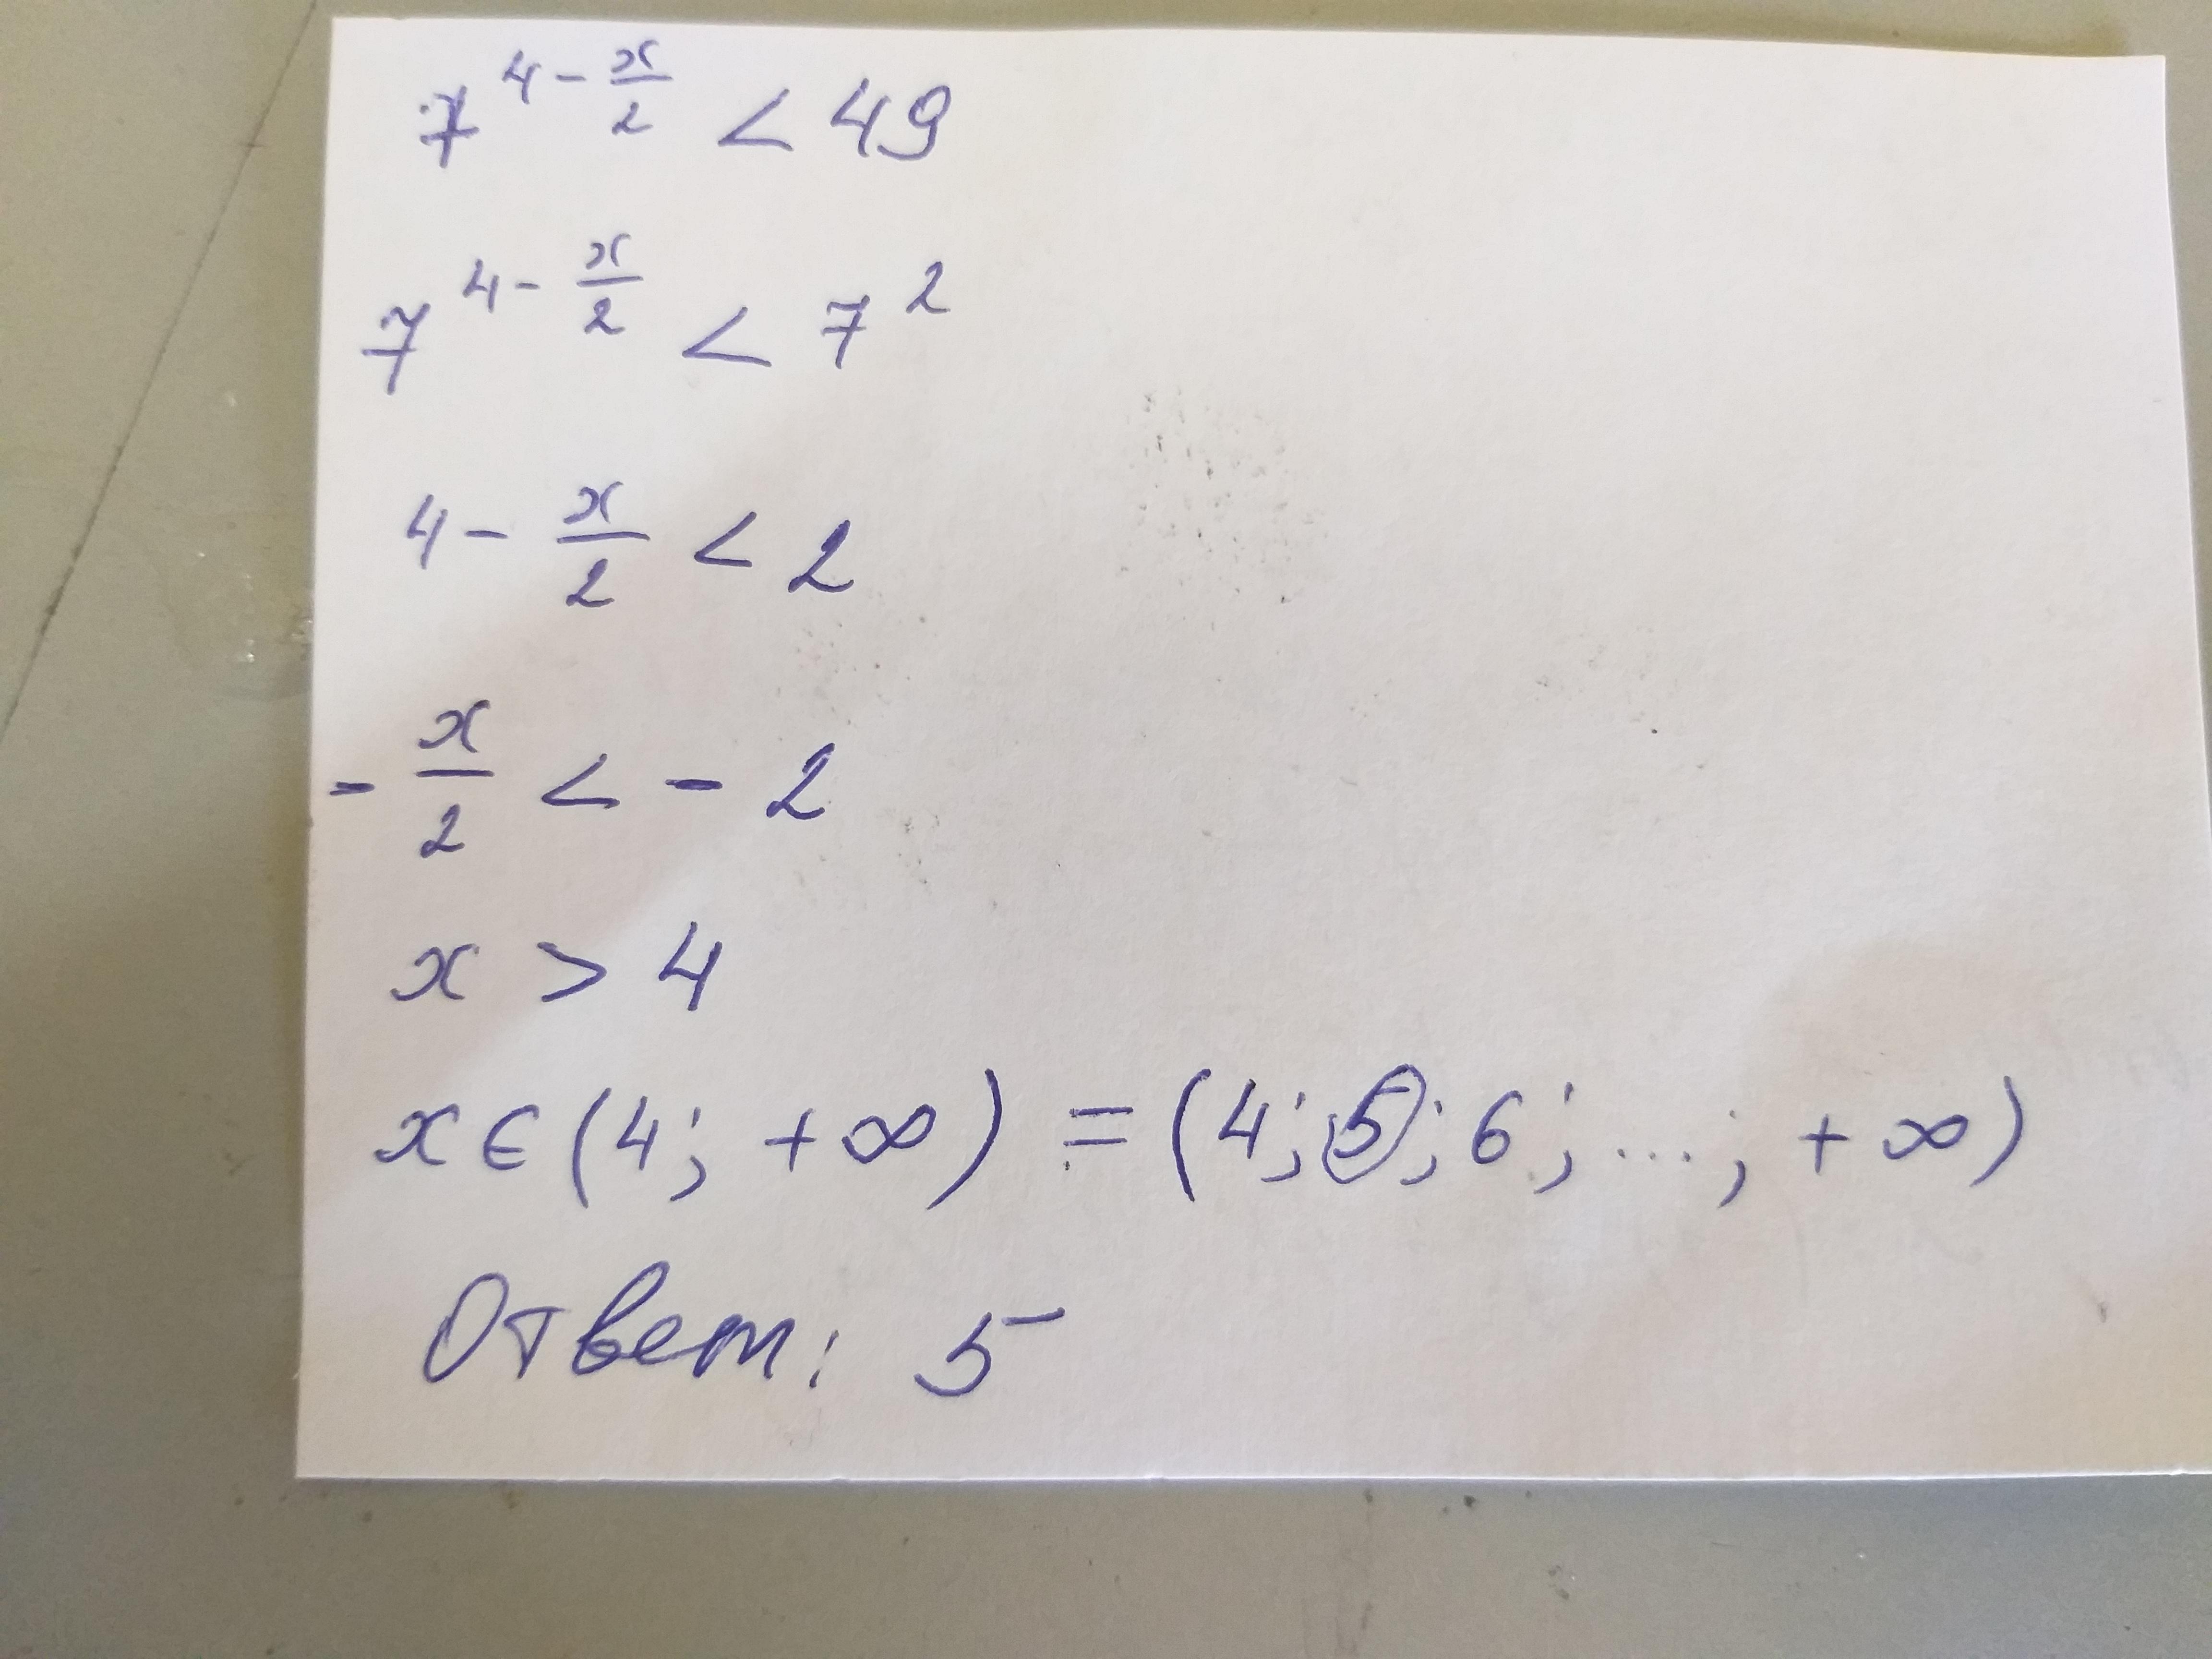 7^{4 - \frac{x}{2}} < 49
7^{4 - \frac{x}{2}} < 7^2
4 - \frac{x}{2} < 2
- \frac{x}{2} < - 2
x > 4
x ∈ (4; +∞) = (4; 5; 6; ...; +∞)
Ответ: 5